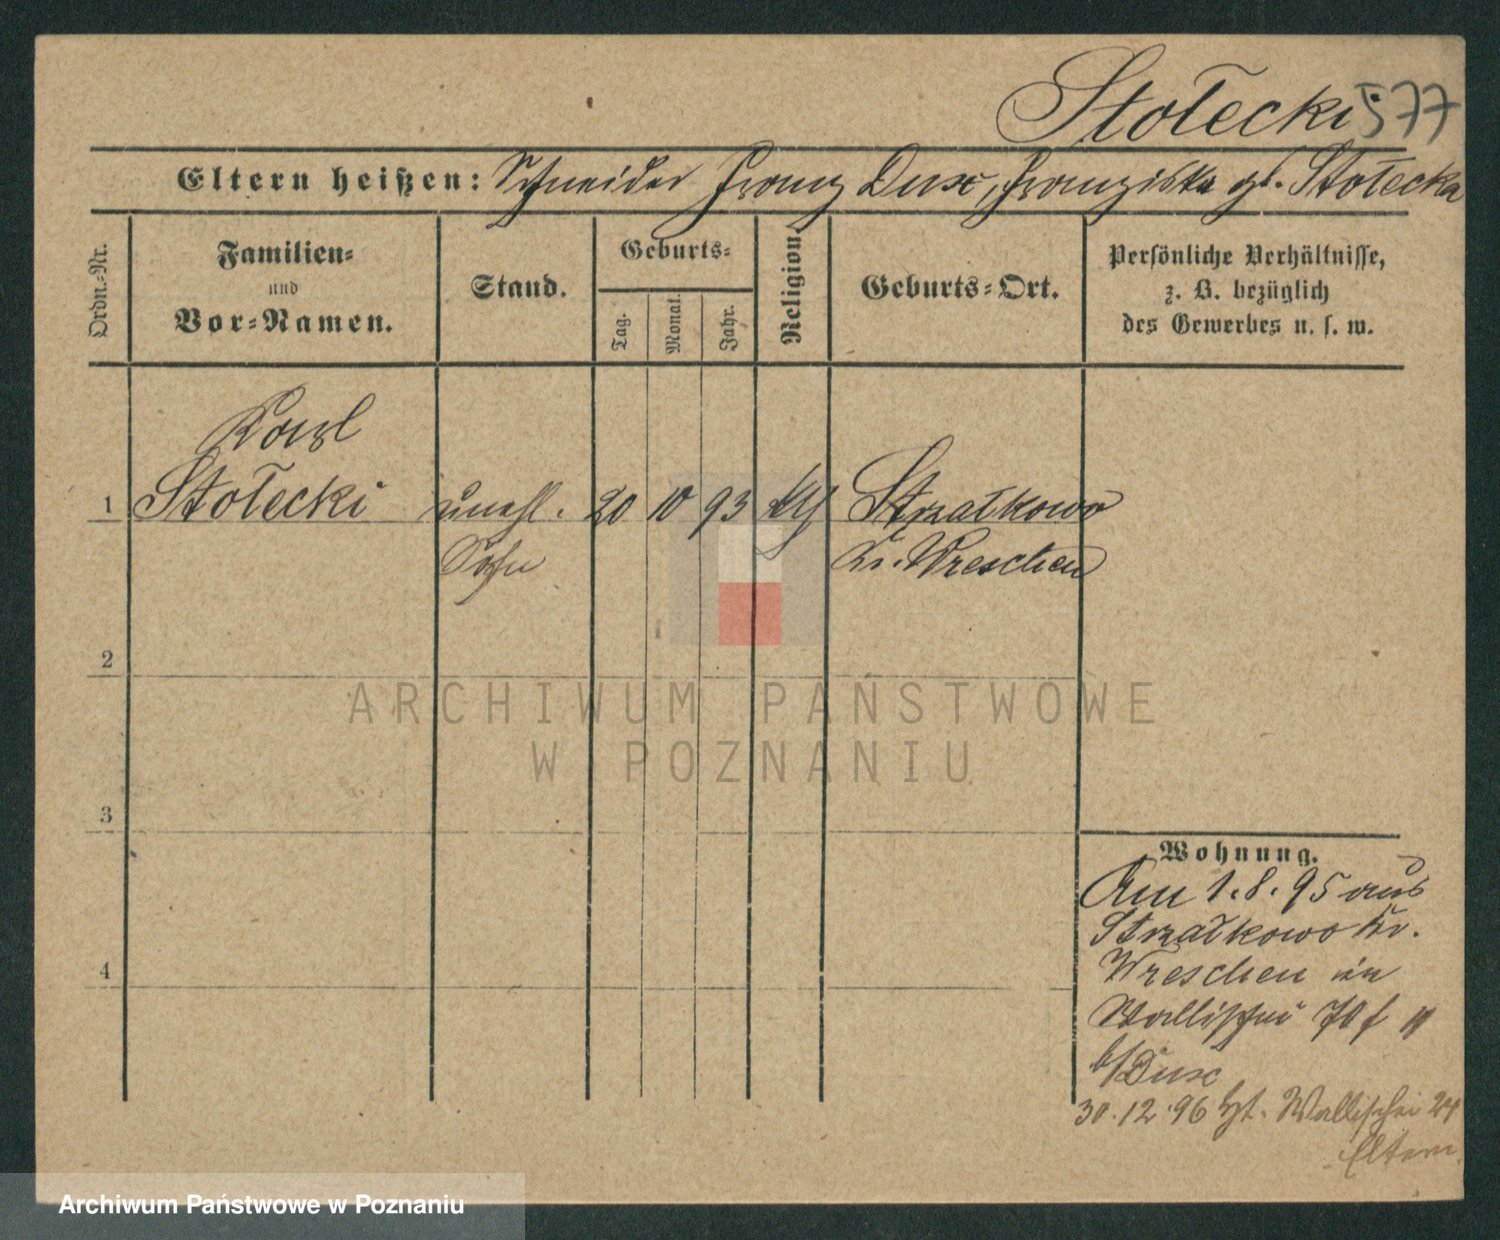 Stołecki 577
Eltern heißen: Schneider Franz Dux, Franziska gb. Stołecka
Ordn.-Nr.
Familien-
und
Vor-Namen.
Stand.
Geburts-
Tag.
Monat.
Jahr.
Religion.
Geburts-Ort.
Persönliche Verhältnisse,
z. B. bezüglich
des Gewerbes u. s. w.
Karl
1 Stołecki unehl. 20 10 93 kth Strzałkowo
Sohn Kr. Wreschen
2
3
4
Wohnung.
Am 1.8.95 aus
Strzałkowo Kr.
Wreschen in
Wallischei 70
b/Dux
30.12.96 Wallischei 24
Eltern
ARCHIWUM PAŃSTWOWE
W POZNANIU
Archiwum Państwowe w Poznaniu